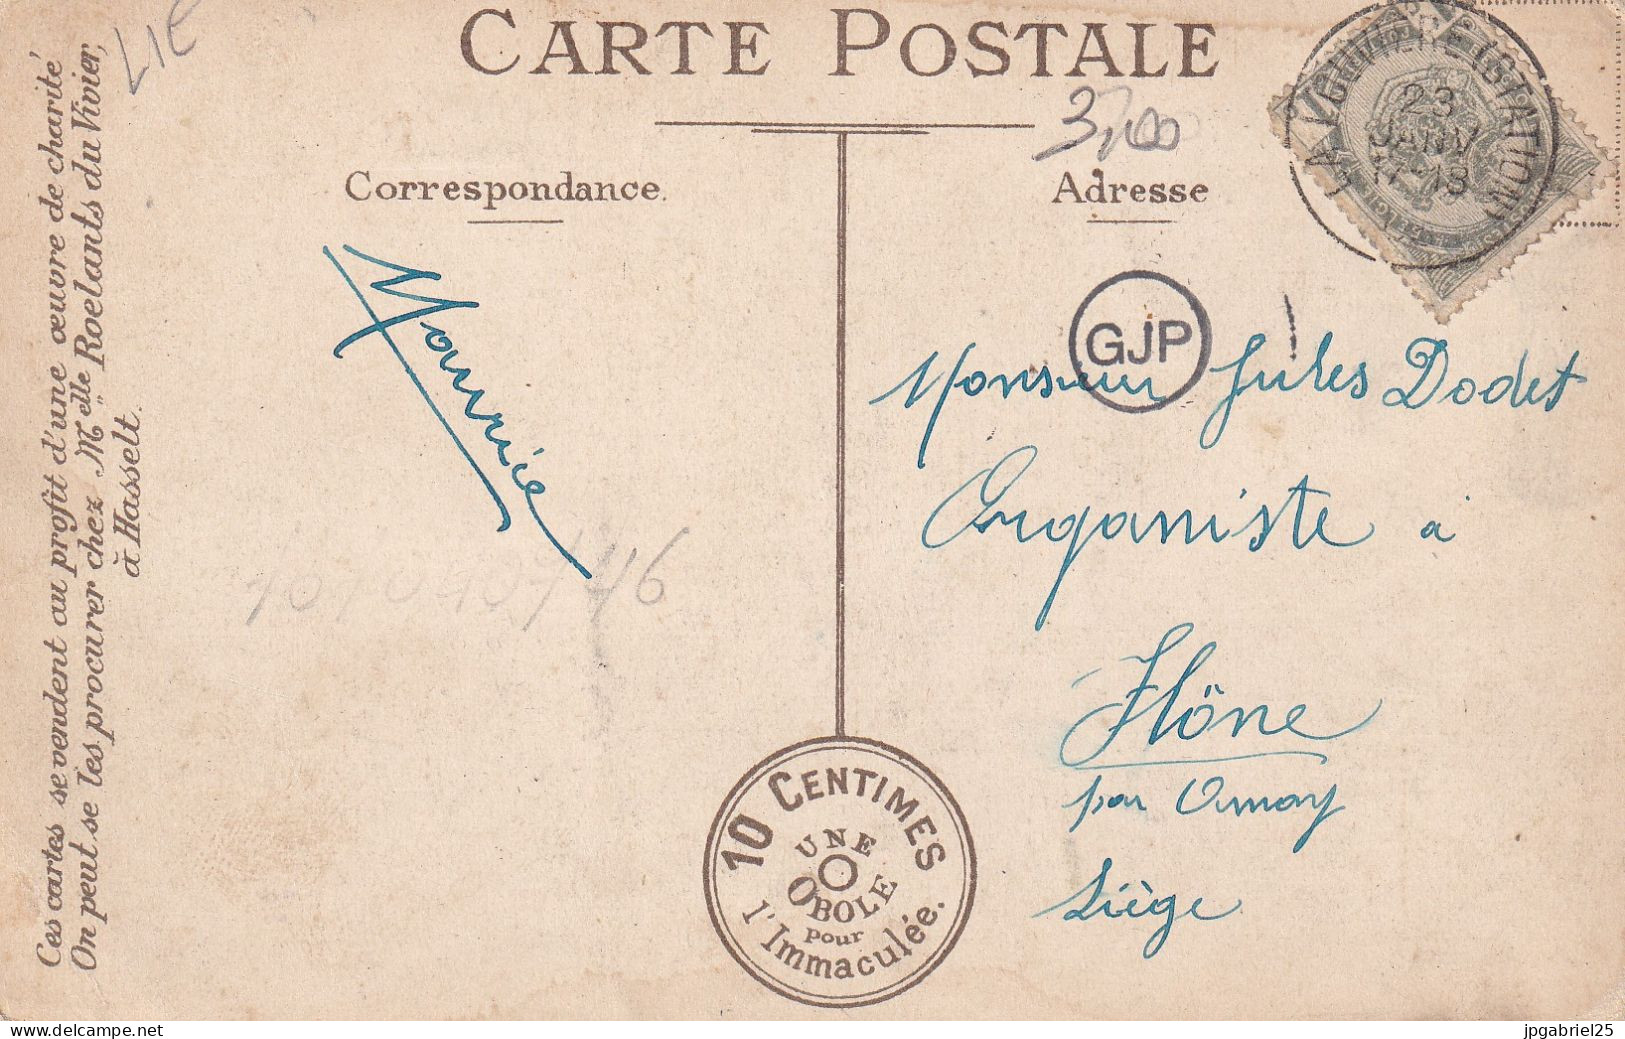 CARTE POSTALE
LIE
3,00
Correspondance.
Adresse
LA LOUVIÈRE (STATION)
23
JANV
17-18
Ces cartes se vendent au profit d'une œuvre de charité
On peut se les procurer chez Melle Roelants du Vivier,
à Hasselt.
Maurice
GJP
Monsieur Jules Dodet
Organiste à
Flône
par Amay
Liège
10 CENTIMES
UNE
OBOLE
pour
l'Immaculée.
delcampe.net
jpgabriel25